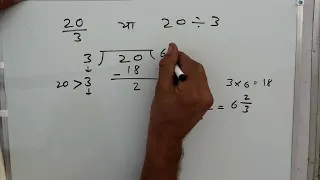 20/3 या 20 ÷ 3
3 ) 20 ( 6
- 18
20 > 3 2
3 × 6 = 18
= 6 2/3